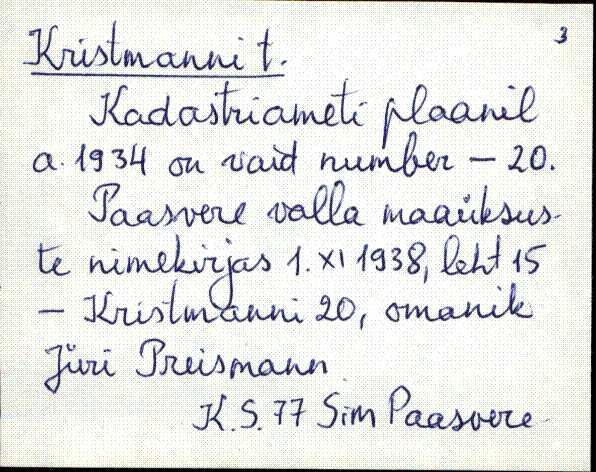 3
Kristmanni t.
Kadastriameti plaanil
a. 1934 on vaid number – 20.
Paasvere valla maaüksus-
te nimekirjas 1. XI 1938, leht 15
– Kristmanni 20, omanik
Jüri Preismann
K. S. 77 Sim Paasvere